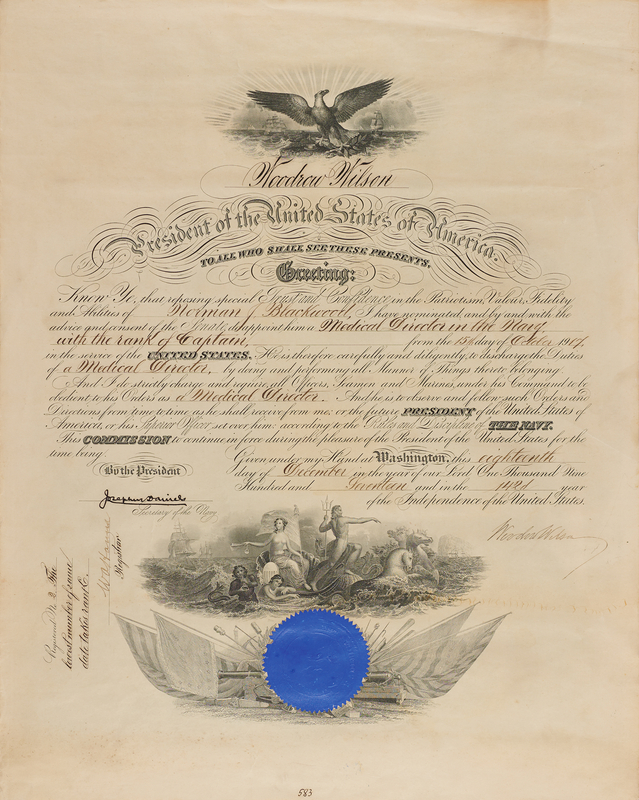 Woodrow Wilson
President of the United States of America.
TO ALL WHO SHALL SEE THESE PRESENTS,
Greeting:
Know Ye, that reposing special Trust and Confidence in the Patriotism, Valour, Fidelity
and Abilities of Norman J. Blackwood, I have nominated, and by and with the
advice and consent of the Senate, do appoint him a Medical Director in the Navy
with the rank of Captain, from the 15th day of October 1917,
in the service of the UNITED STATES. He is therefore carefully and diligently to discharge the Duties
of a Medical Director, by doing and performing all Manner of Things thereto belonging.
And I do strictly charge and require all Officers, Seamen and Marines, under his Command to be
obedient to his Orders as a Medical Director. And he is to observe and follow such Orders and
Directions from time to time as he shall receive from me, or the future PRESIDENT of the United States of
America, or his Superior Officer set over him, according to the Rules and Discipline of THE NAVY.
This COMMISSION to continue in force during the pleasure of the President of the United States for the
time being.
Given under my Hand at Washington, this eighteenth
day of December in the year of our Lord One Thousand Nine
Hundred and Seventeen and in the 142d year
of the Independence of the United States.
By the President
Josephus Daniels
Secretary of the Navy
Woodrow Wilson
Registrar
Registered No. 2 The
lowest number of same
date takes rank.
583